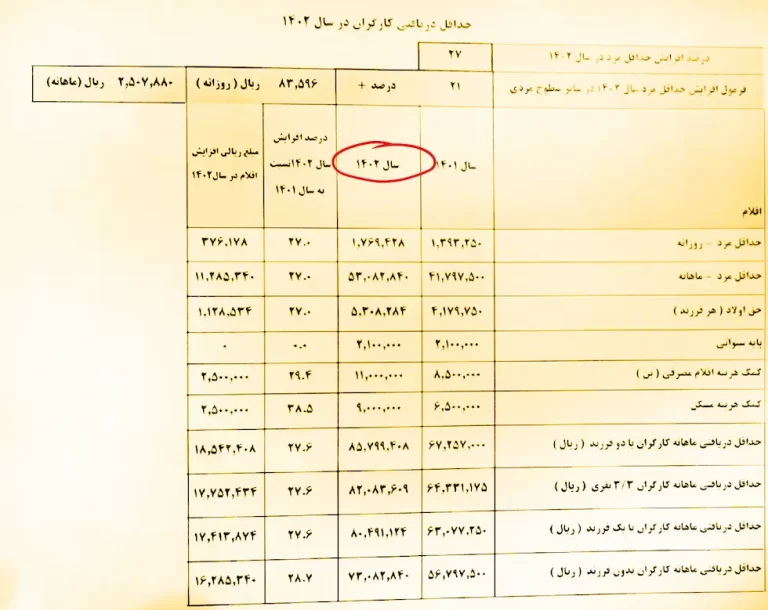 حداقل دریافتی کارگران در سال ۱۴۰۲
درصد افزایش حداقل مزد در سال ۱۴۰۲ ۲۷
فرمول افزایش حداقل مزد سال ۱۴۰۲ در سایر سطوح مزدی ۲۱ درصد + ۸۳,۵۹۶ ریال (روزانه) ۲,۵۰۷,۸۸۰ ریال (ماهانه)
اقلام سال ۱۴۰۱ سال ۱۴۰۲ درصد افزایش سال ۱۴۰۲نسبت به سال ۱۴۰۱ مبلغ ریالی افزایش اقلام در سال۱۴۰۲
حداقل مزد - روزانه ۱,۳۹۳,۲۵۰ ۱,۷۶۹,۴۲۸ ۲۷.۰ ۳۷۶,۱۷۸
حداقل مزد - ماهانه ۴۱,۷۹۷,۵۰۰ ۵۳,۰۸۲,۸۴۰ ۲۷.۰ ۱۱,۲۸۵,۳۴۰
حق اولاد ( هر فرزند ) ۴,۱۷۹,۷۵۰ ۵,۳۰۸,۲۸۴ ۲۷.۰ ۱,۱۲۸,۵۳۴
پایه سنواتی ۲,۱۰۰,۰۰۰ ۲,۱۰۰,۰۰۰ ۰.۰ ۰
کمک هزینه اقلام مصرفی ( بن ) ۸,۵۰۰,۰۰۰ ۱۱,۰۰۰,۰۰۰ ۲۹.۴ ۲,۵۰۰,۰۰۰
کمک هزینه مسکن ۶,۵۰۰,۰۰۰ ۹,۰۰۰,۰۰۰ ۳۸.۵ ۲,۵۰۰,۰۰۰
حداقل دریافتی ماهانه کارگران با دو فرزند ( ریال ) ۶۷,۲۵۷,۰۰۰ ۸۵,۷۹۹,۴۰۸ ۲۷.۶ ۱۸,۵۴۲,۴۰۸
حداقل دریافتی ماهانه کارگران ۳/۳ نفری ( ریال ) ۶۴,۳۳۱,۱۷۵ ۸۲,۰۸۳,۶۰۹ ۲۷.۶ ۱۷,۷۵۲,۴۳۴
حداقل دریافتی ماهانه کارگران با یک فرزند ( ریال ) ۶۳,۰۷۷,۲۵۰ ۸۰,۴۹۱,۱۲۴ ۲۷.۶ ۱۷,۴۱۳,۸۷۴
حداقل دریافتی ماهانه کارگران بدون فرزند ( ریال ) ۵۶,۷۹۷,۵۰۰ ۷۳,۰۸۲,۸۴۰ ۲۸.۷ ۱۶,۲۸۵,۳۴۰